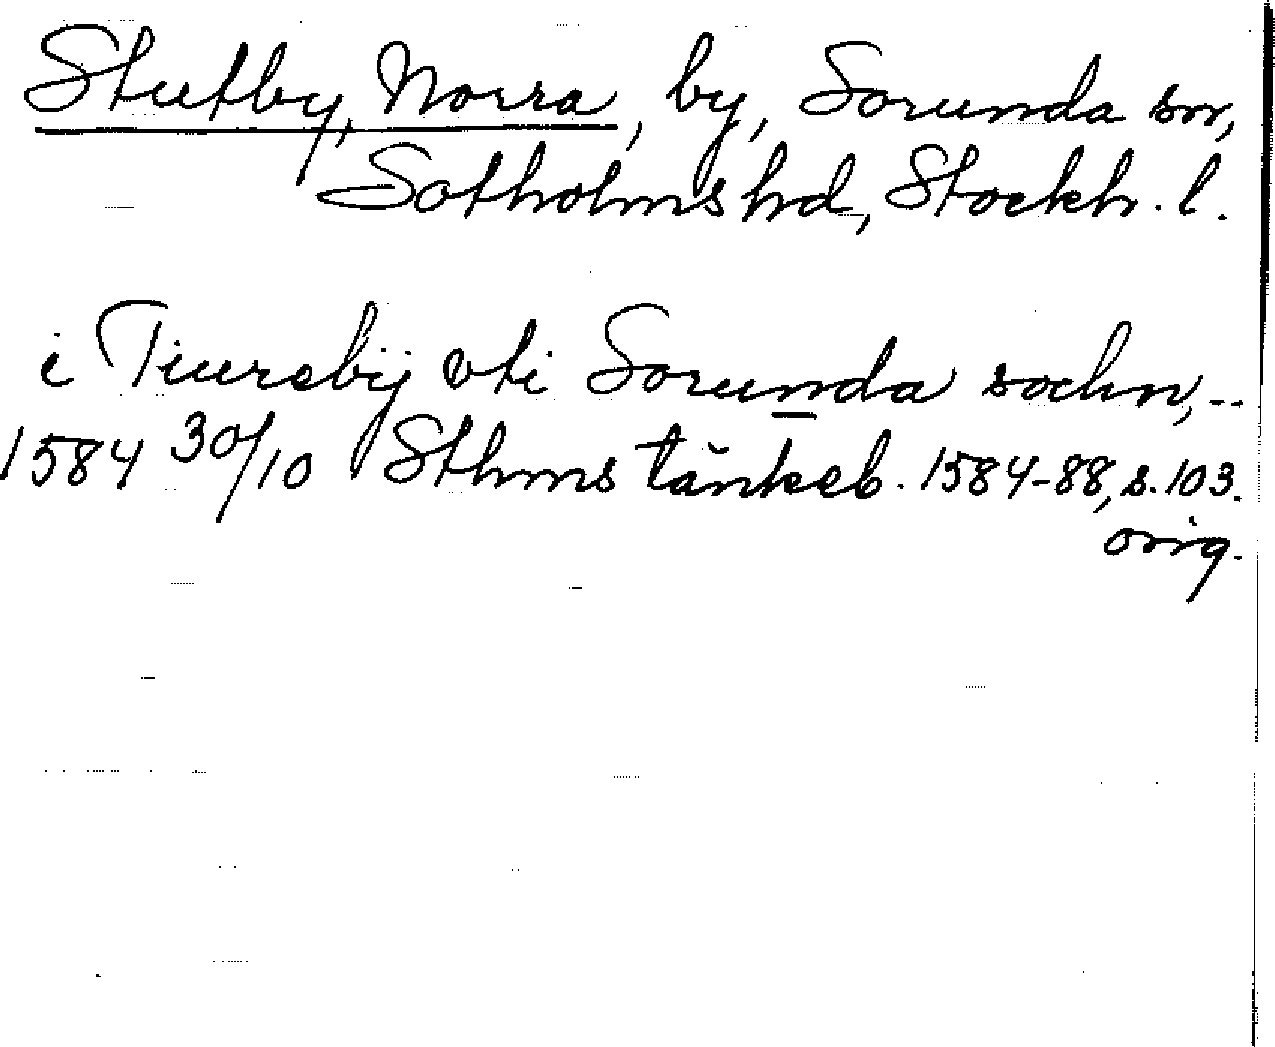 Stutby, Norra, by, Sorunda sn,
Sotholms hd, Stockh. l.
i Tiurebij vti Sorunda sochn, --
1584 30/10 Sthms tänkeb. 1584-88, s. 103.
orig.